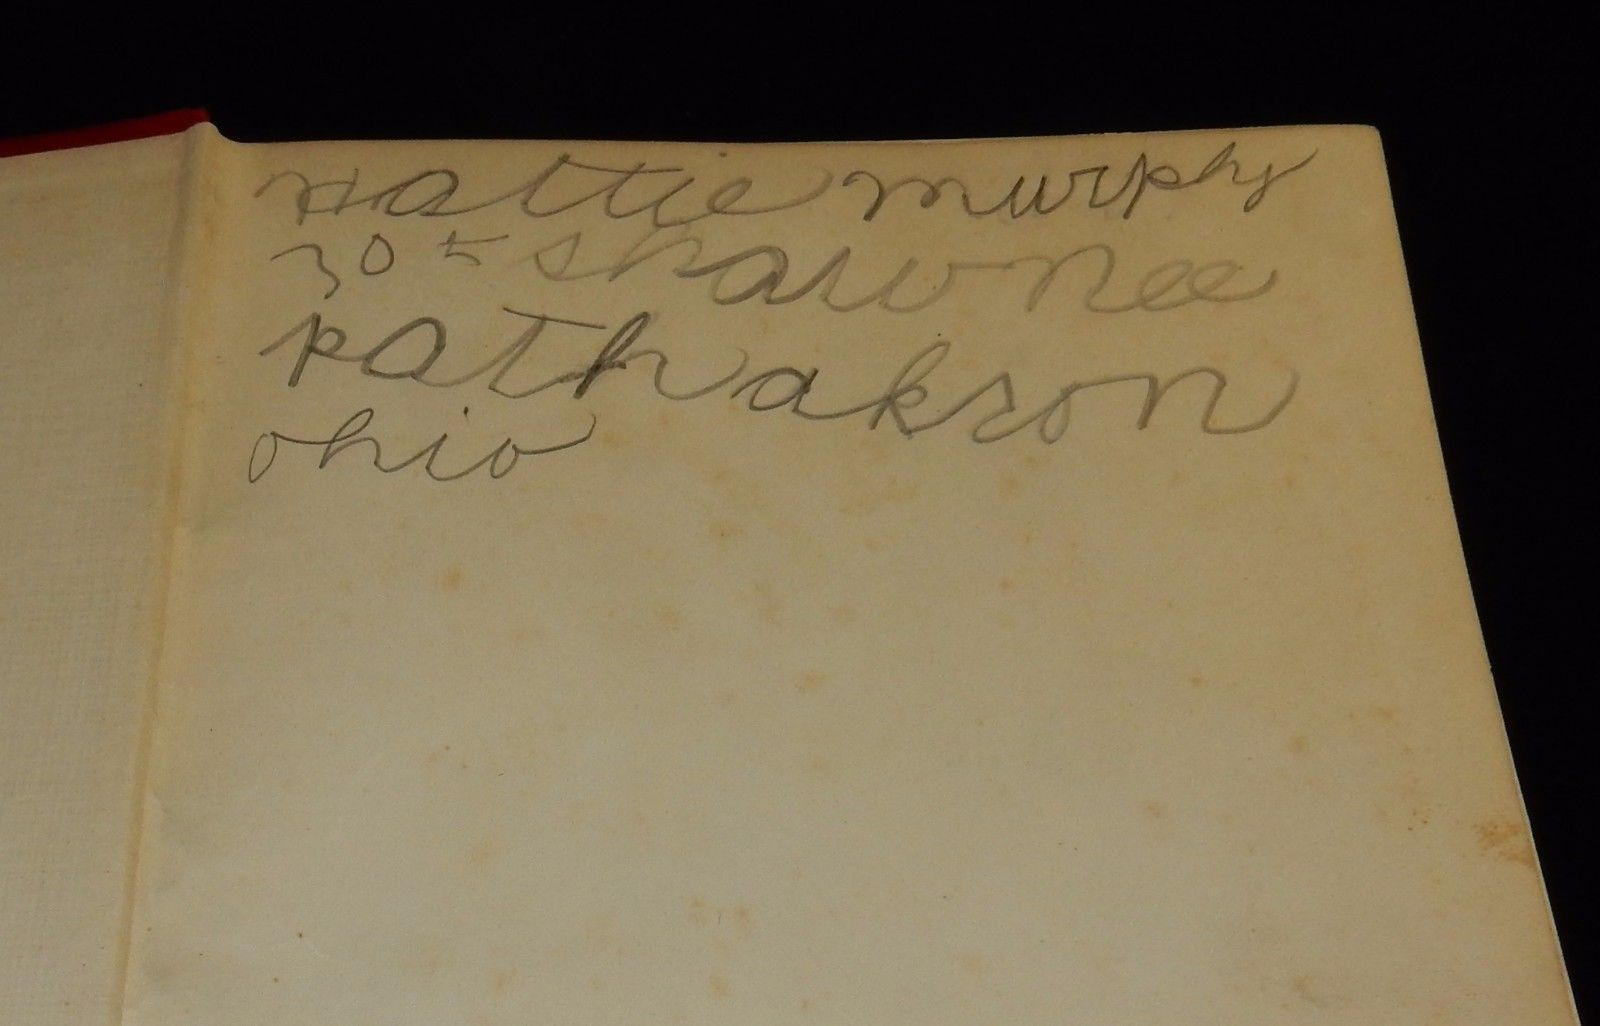 nattie murphy
305 shawnee
path akron
ohio